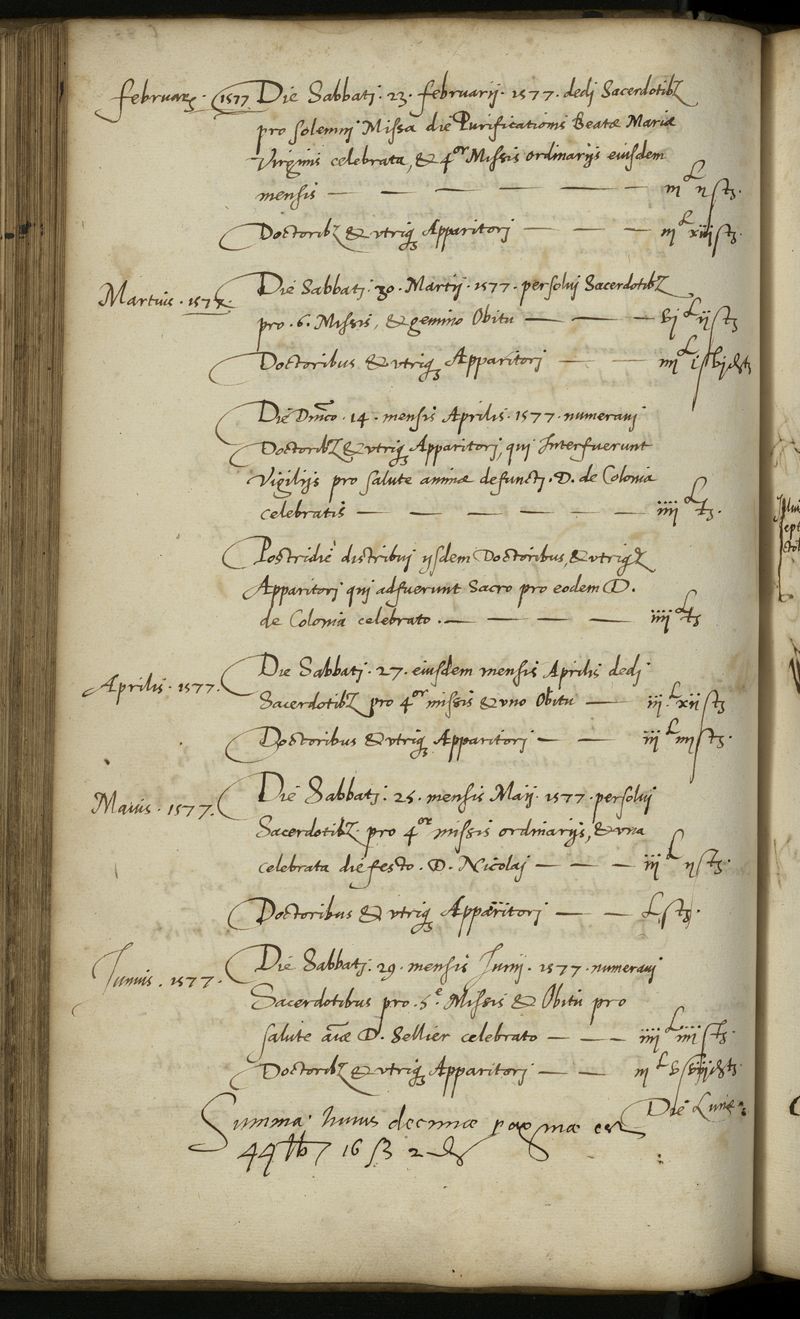 februarȝ · 1577 Die Sabbati · 23 · februarij · 1577 · dedi Sacerdotibȝ
pro solemni Missa die Purificationis Beatæ Mariæ
Virginis celebrata, & 4or Missis ordinarijs eiusdem
mensis — — — — — iij L ij s ts.
Doctoribȝ & vtriqȝ Apparitori — — — iij L xiiij s ts.
Martius · 1577 · Die Sabbati · 30 · Martij · 1577 · persolui Sacerdotibȝ
pro · 6 · Missis, & gemino Obitu — — — vj L ij s ts
Doctoribus & vtriqȝ Apparitori — — iiij L i s vj d ts
Die Dnīco · 14 · mensis Aprilis · 1577 · numeraui
Doctoribȝ & vtriqȝ Apparitori, qui Interfuerunt
Vigilijs pro salute animæ defuncti · D. de Colonia
celebratis — — — — — iiij L ts.
Postridie distribui ijsdem Doctoribus, & vtriqȝ
Apparitori qui adfuerunt Sacro pro eodem D.
de Colonia celebrato · — — — — iiij L ts
Aprilis · 1577 · Die Sabbati · 27 · eiusdem mensis Aprilis dedi
Sacerdotibȝ pro 4or missis & vno Obitu — iij L xij s ts
Doctoribus & vtriqȝ Apparitori — — iij L iiij s ts.
Maius · 1577. Die Sabbati · 25 · mensis Maij · 1577 · persolui
Sacerdotibȝ pro 4or missis ordinarijs, & vna
celebrata die festo · D. Nicolaj — — — iij L ij s ts.
Doctoribus & vtriqȝ Apparitori — — L s ts.
Junius · 1577 · Die Sabbati · 29 · mensis Junij · 1577 · numeraui
Sacerdotibus pro · 5e · Missis & Obitu pro
salute aīæ D. Sellier celebrato — — — iiij L iiij s ts.
Doctoribȝ & vtriqȝ Apparitori — — iij L v s viij d ts.
Die Lunæ
Summa huius decimæ paginæ est
44 lb 16 ß 2 d